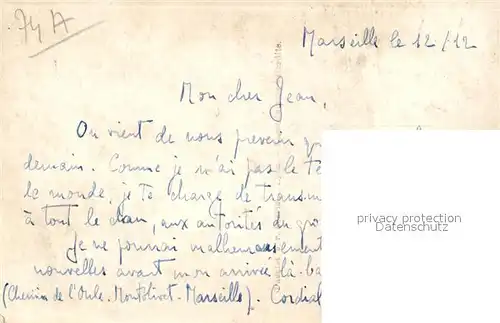 74 A
Marseille le 12/12
Mon cher Jean,
On vient de nous prevenir
demain. Comme je n'ai pas le te
le monde, je te charge de transm
à tout le clan, aux autorités du gro
Je ne pourrai malheureusement
nouvelles avant mon arrivée là-ba
(Chemin de l'Oule. Montolivet. Marseille). Cordial
privacy protection
Datenschutz